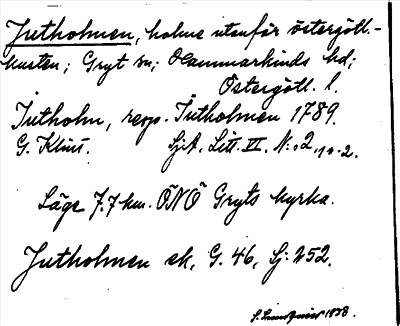 Jutholmen, holme utanför östergötl.-
kusten; Gryt sn; Hammarkinds hd;
Östergötl. l.
Jutholm, resp. Jutholmen 1789.
G. Klint. Sj.A. Litt. VI. N:o 2, 1 o. 2.
Läge 7.7 km. ÖNÖ Gryts kyrka.
Jutholmen ek, G. 46, Sj: 252.
S. 1938.